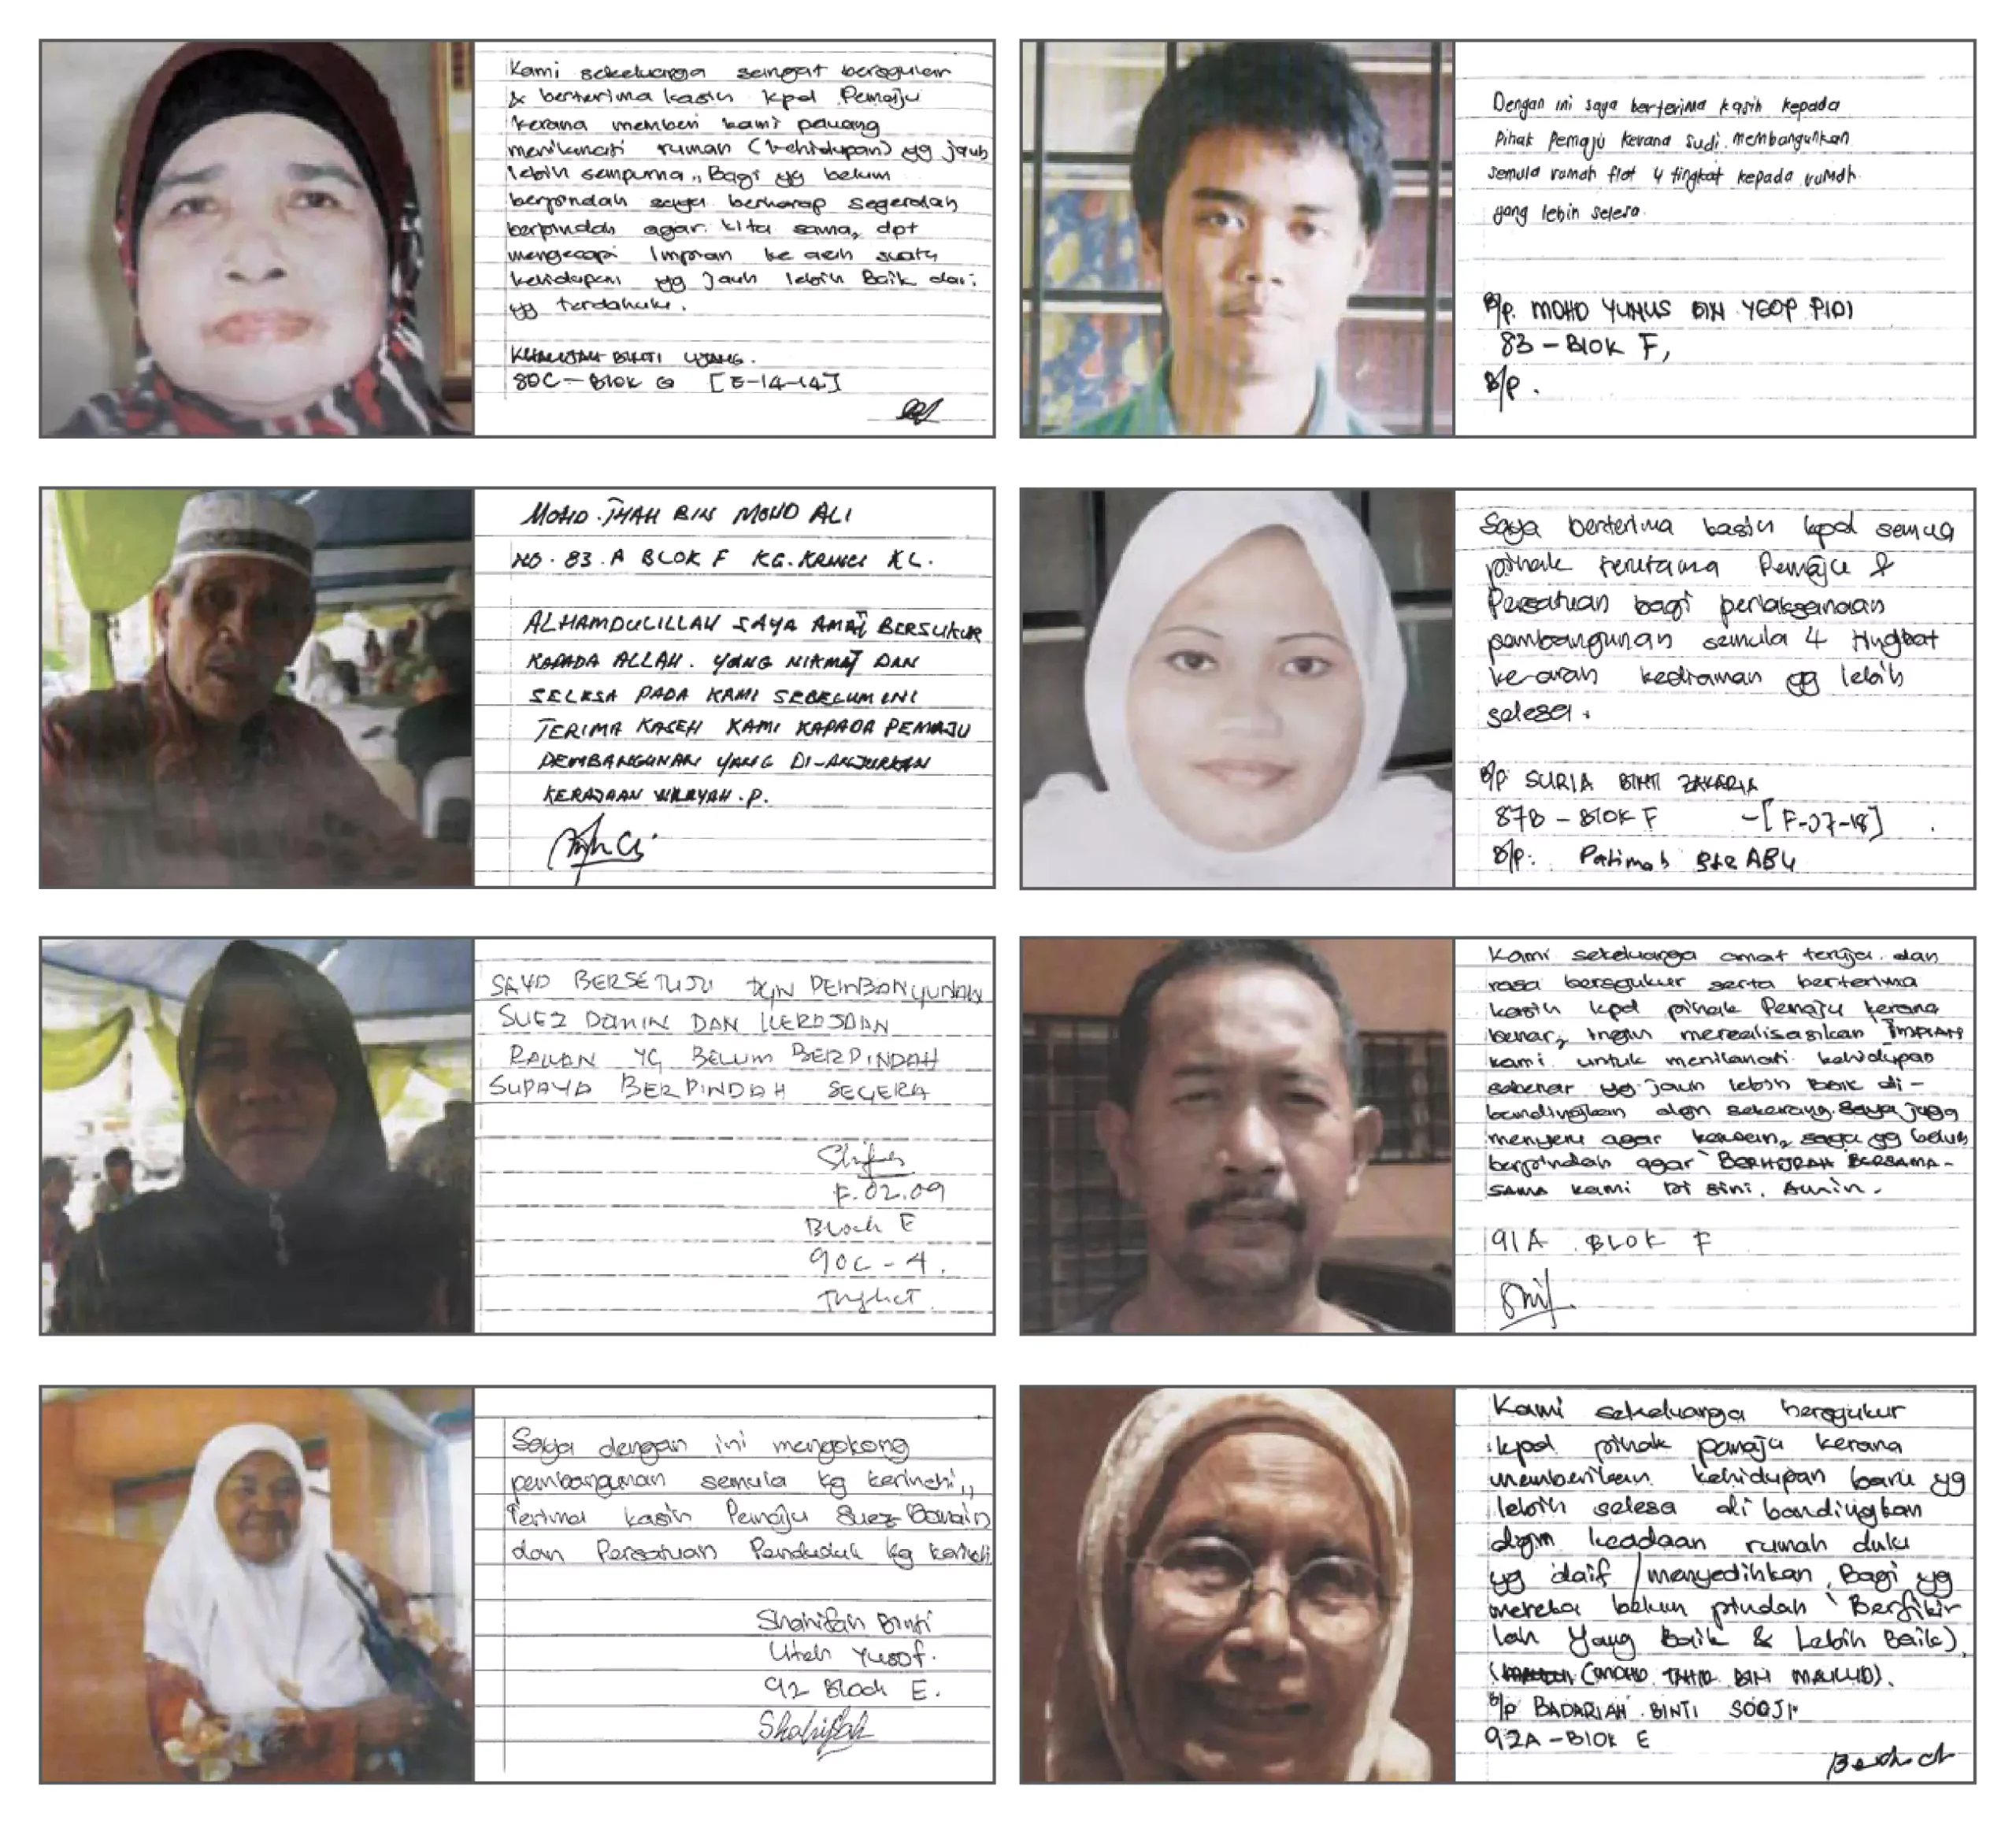 Kami sekeluarga sangat bersyukur
& berterima kasih kpd Pemaju
kerana memberi kami peluang
menikmati rumah (kehidupan) yg jauh
lebih sempurna,, Bagi yg belum
berpindah saya berharap segeralah
berpindah agar kita sama2 dpt
mengecapi Impian ke arah suatu
kehidupan yg jauh lebih Baik dari
yg terdahulu.
BINTI UJANG.
80C - Blok G [E-14-14]
Dengan ini saya berterima kasih kepada
Pihak Pemaju kerana sudi membangunkan
semula rumah flat 4 tingkat kepada rumah
yang lebih selesa.
B/p. MOHD YUNUS BIN YEOP PIDI
83 - Blok F,
B/p.
MOHD. BIN MOHD ALI
NO. 83.A BLOK F KG. KL.
ALHAMDULILLAH SAYA AMAT BERSUKUR
KAPADA ALLAH. YANG NIKMAT DAN
SELESA PADA KAMI SEBELUM INI
TERIMA KASEH KAMI KAPADA PEMAJU
PEMBANGUNAN YANG DI-ANJURKAN
KERAJAAN WILAYAH.P.
Saya berterima kasih kpd semua
pihak terutama Pemaju &
Persatuan bagi perlaksanaan
pembangunan semula 4 tingkat
ke arah kediaman yg lebih
selesa.
B/p SURIA BINTI ZAKARIA
87B - Blok F -[F-07-18]
B/p: Patimah Btr ABU
SAYA BERSETUJU DGN PEMBANGUNAN
SUEZ DOMIN DAN KERAJAAN
RAKAN YG BELUM BERPINDAH
SUPAYA BERPINDAH SEGERA
F.02.09
Block E
90C - 4.
Tingkat.
Kami sekeluarga amat teruja dan
rasa bersyukur serta berterima
kasih kpd pihak Pemaju kerana
benar2 ingin merealisasikan IMPIAN
kami untuk menikmati kehidupan
sebenar yg jauh lebih Baik di-
bandingkan dgn sekarang. Saya juga
menyeru agar kawan2 saya yg belum
berpindah agar BERHIJRAH BERSAMA-
SAMA kami Di Sini. Amin.
91A BLOK F
Saya dengan ini mengokong
pembangunan semula kg kerinchi,,
Terima kasih Pemaju Suez Domain
dan Persatuan Penduduk kg kerinchi
Sharifah Binti
Yusof.
92 Block E.
Sharifah
Kami sekeluarga bersyukur
kpd pihak pemaju kerana
memberikan kehidupan baru yg
lebih selesa di bandingkan
dgn keadaan rumah dulu
yg daif / menyedihkan. Bagi yg
mereka belum pindah 'Berfikir
lah Yang Baik & Lebih Baik).
(MOHD TAHIR BIN).
B/p BADARIAH BINTI
92A - Blok E